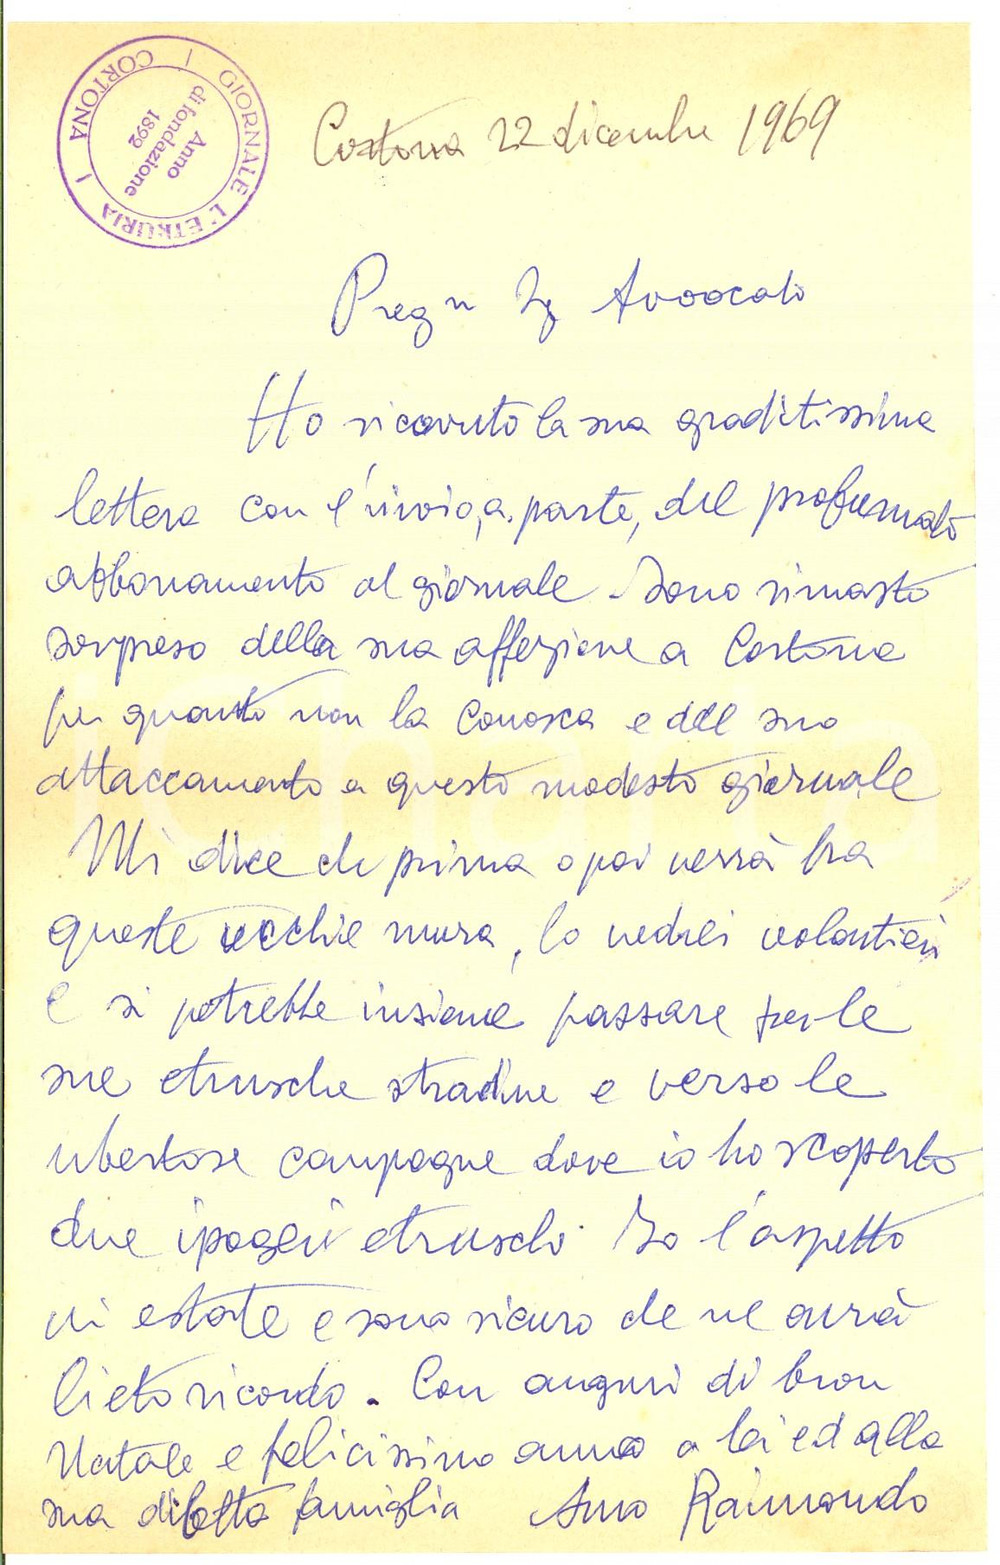 GIORNALE L'ETRURIA
CORTONA
Anno
di fondazione
1892
Cortona 22 dicembre 1969
Preg n Sg Avvocato
Ho ricevuto la sua graditissima
lettera con l'invio, a parte, del profumato
abbonamento al giornale. Sono rimasto
sorpreso della sua affezione a Cortona
per quanto non la conosca e del suo
attaccamento a questo modesto giornale
Mi dice che prima o poi verrà fra
queste vecchie mura, lo vedrei volentieri
e si potrebbe insieme passare per le
sue etrusche stradine e verso le
ubertose campagne dove io ho scoperto
due ipogei etruschi. Io l'aspetto
in estate e sono sicuro che ne avrà
lieto ricordo. Con auguri di buon
Natale e felicissimo anno a lei ed alla
sua diletta famiglia Suo Raimondo
iCharta